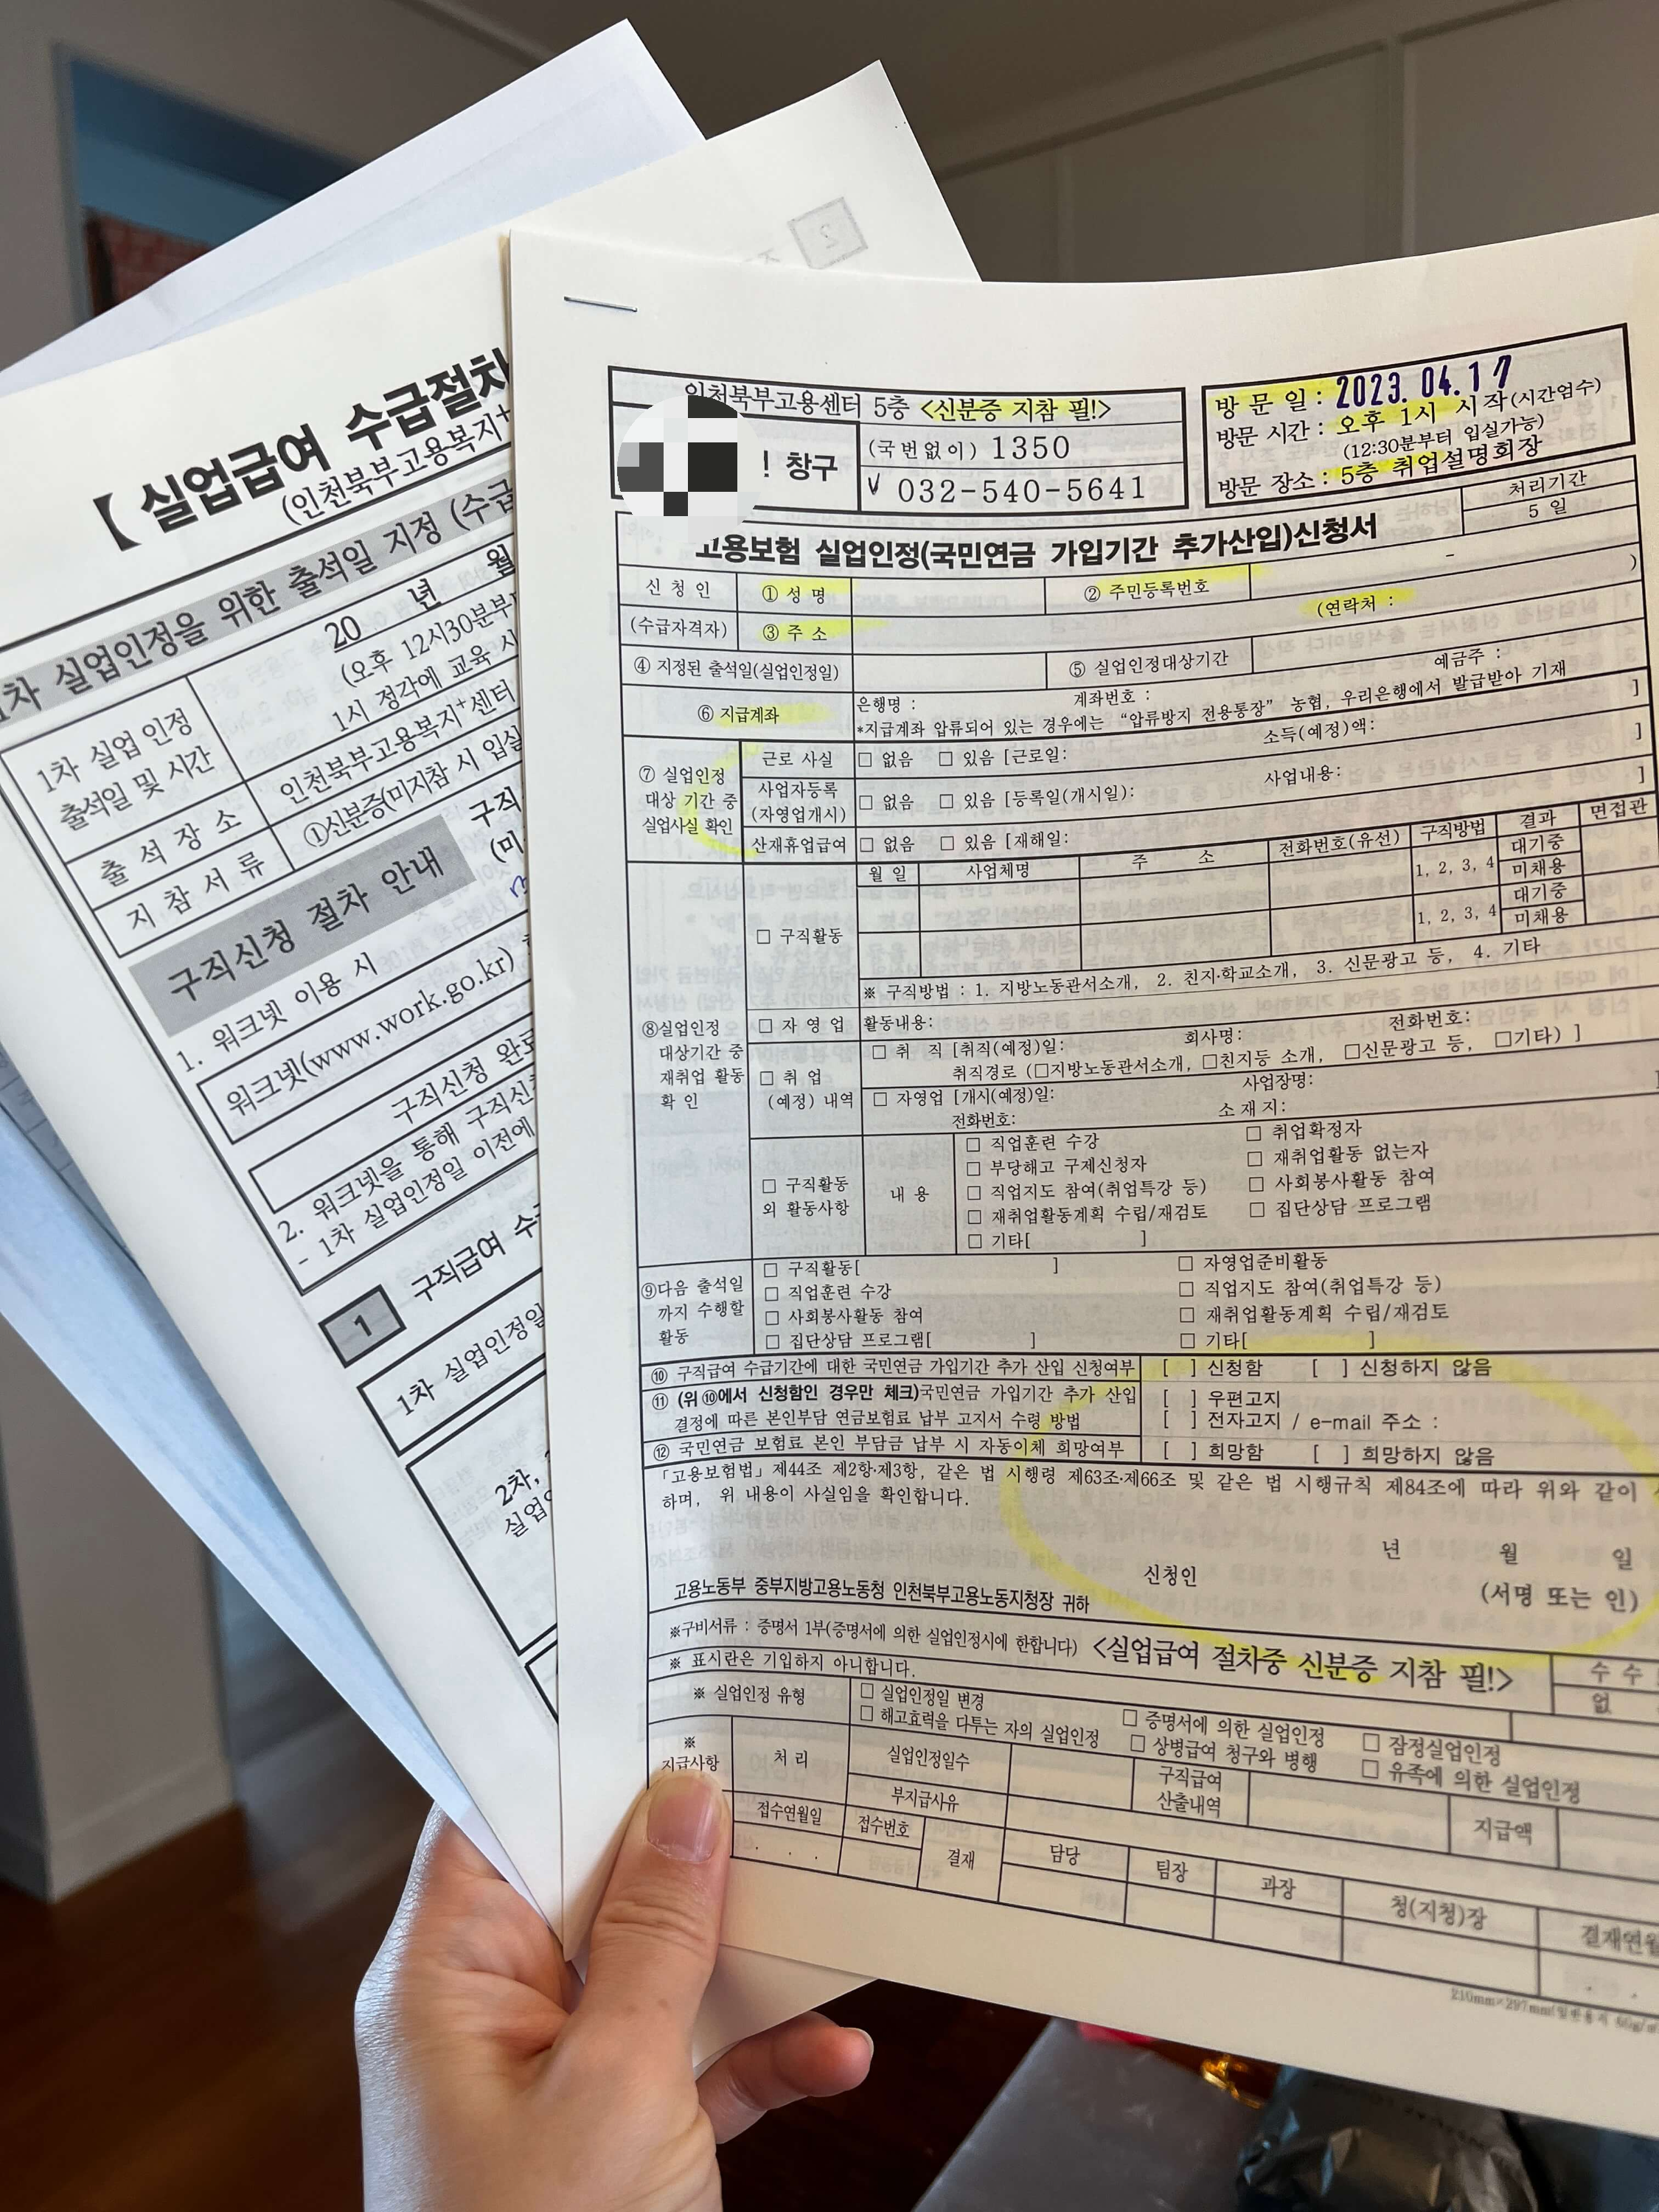 【 실업급여 수급절차
(인천북부고용복지+
1차 실업인정을 위한 출석일 지정 (수급
1차 실업 인정
출석일 및 시간
20 년 월
(오후 12시30분부터
1시 정각에 교육 시
출 석 장 소
인천북부고용복지+센터
지 참 서 류
①신분증(미지참 시 입실
구직
(미
구직신청 절차 안내
1. 워크넷 이용 시
워크넷(www.work.go.kr)
구직신청 완료
2. 워크넷을 통해 구직신청
- 1차 실업인정일 이전에
1 구직급여 수급
1차 실업인정일
2차,
실업인
인천북부고용센터 5층 <신분증 지참 필!>
! 창구
(국번없이) 1350
√ 032-540-5641
방 문 일 : 2023. 04. 17
방문 시간 : 오후 1시 시작(시간엄수)
(12:30분부터 입실가능)
방문 장소 : 5층 취업설명회장
고용보험 실업인정(국민연금 가입기간 추가산입)신청서
처리기간
5 일
신 청 인
(수급자격자)
① 성 명
② 주민등록번호
-
③ 주 소
(연락처 : )
④ 지정된 출석일(실업인정일)
⑤ 실업인정대상기간
⑥ 지급계좌
은행명 : 계좌번호 : 예금주 :
*지급계좌 압류되어 있는 경우에는 “압류방지 전용통장” 농협, 우리은행에서 발급받아 기재
⑦ 실업인정
대상 기간 중
실업사실 확인
근로 사실
□ 없음 □ 있음 [근로일: 소득(예정)액: ]
사업자등록
(자영업개시)
□ 없음 □ 있음 [등록일(개시일): 사업내용: ]
산재휴업급여
□ 없음 □ 있음 [재해일: ]
⑧실업인정
대상기간 중
재취업 활동
확 인
□ 구직활동
월 일 사업체명 주 소 전화번호(유선) 구직방법 결과 면접관
1, 2, 3, 4 대기중
미채용
1, 2, 3, 4 대기중
미채용
※ 구직방법 : 1. 지방노동관서소개, 2. 친지·학교소개, 3. 신문광고 등, 4. 기타
□ 자 영 업 활동내용:
□ 취 업
(예정) 내역
□ 취 직 [취직(예정)일: 회사명: 전화번호:
취직경로 (□지방노동관서소개, □친지등 소개, □신문광고 등, □기타) ]
□ 자영업 [개시(예정)일: 사업장명:
전화번호: 소 재 지: ]
□ 구직활동
외 활동사항
내 용
□ 직업훈련 수강 □ 취업확정자
□ 부당해고 구제신청자 □ 재취업활동 없는자
□ 직업지도 참여(취업특강 등) □ 사회봉사활동 참여
□ 재취업활동계획 수립/재검토 □ 집단상담 프로그램
□ 기타[ ]
⑨다음 출석일
까지 수행할
활동
□ 구직활동[ ] □ 자영업준비활동
□ 직업훈련 수강 □ 직업지도 참여(취업특강 등)
□ 사회봉사활동 참여 □ 재취업활동계획 수립/재검토
□ 집단상담 프로그램[ ] □ 기타[ ]
⑩ 구직급여 수급기간에 대한 국민연금 가입기간 추가 산입 신청여부 [ ] 신청함 [ ] 신청하지 않음
⑪ (위 ⑩에서 신청함인 경우만 체크)국민연금 가입기간 추가 산입
결정에 따른 본인부담 연금보험료 납부 고지서 수령 방법
[ ] 우편고지
[ ] 전자고지 / e-mail 주소 :
⑫ 국민연금 보험료 본인 부담금 납부 시 자동이체 희망여부 [ ] 희망함 [ ] 희망하지 않음
「고용보험법」제44조 제2항·제3항, 같은 법 시행령 제63조·제66조 및 같은 법 시행규칙 제84조에 따라 위와 같이
하며, 위 내용이 사실임을 확인합니다.
년 월 일
신청인 (서명 또는 인)
고용노동부 중부지방고용노동청 인천북부고용노동지청장 귀하
※구비서류 : 증명서 1부(증명서에 의한 실업인정시에 한합니다) <실업급여 절차중 신분증 지참 필!>
수 수
없
※ 표시란은 기입하지 아니합니다.
※ 실업인정 유형
□ 실업인정일 변경 □ 증명서에 의한 실업인정 □ 잠정실업인정
□ 해고효력을 다투는 자의 실업인정 □ 상병급여 청구와 병행 □ 유족에 의한 실업인정
※
지급사항
처 리
실업인정일수
구직급여
산출내역
지급액
부지급사유
접수연월일
접수번호
. . .
결재
담당
팀장
과장
청(지청)장
결재연월
. .
210mm×297mm(일반용지 60g/㎡